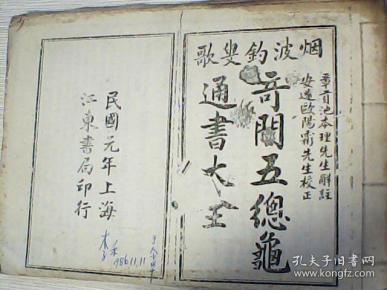 烟波釣叟歌
章貢池本理先生解註
安遠歐陽先生校正
奇門五總龜
通書大全
民國元年上海
江東書局印行
1986.11.11
孔夫子旧书网